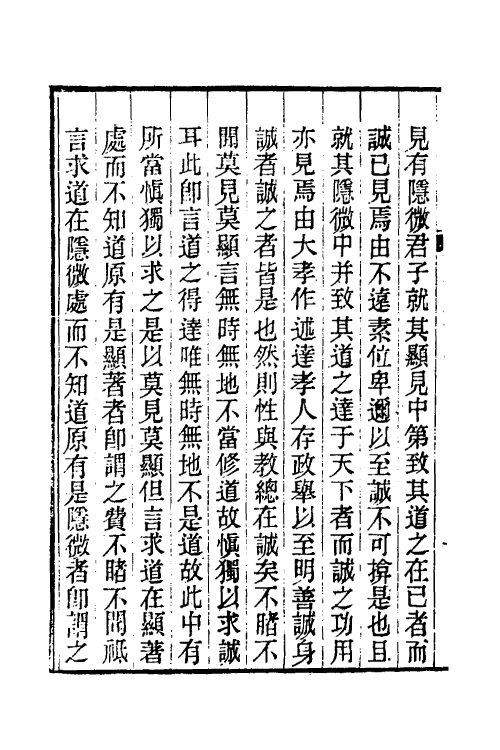 見有隱微君子就其顯見中第致其道之在已者而
誠已見焉由不遠素位卑邇以至誠不可揜是也且
就其隱微中并致其道之達于天下者而誠之功用
亦見焉由大孝作述達孝人存政舉以至明善誠身
誠者誠之者皆是也然則性與教總在誠矣不睹不
聞莫見莫顯言無時無地不當修道故慎獨以求誠
耳此卽言道之得達唯無時無地不是道故此中有
所當慎獨以求之是以莫見莫顯但言求道在顯著
處而不知道原有是顯著者卽謂之費不睹不聞祇
言求道在隱微處而不知道原有是隱微者卽謂之